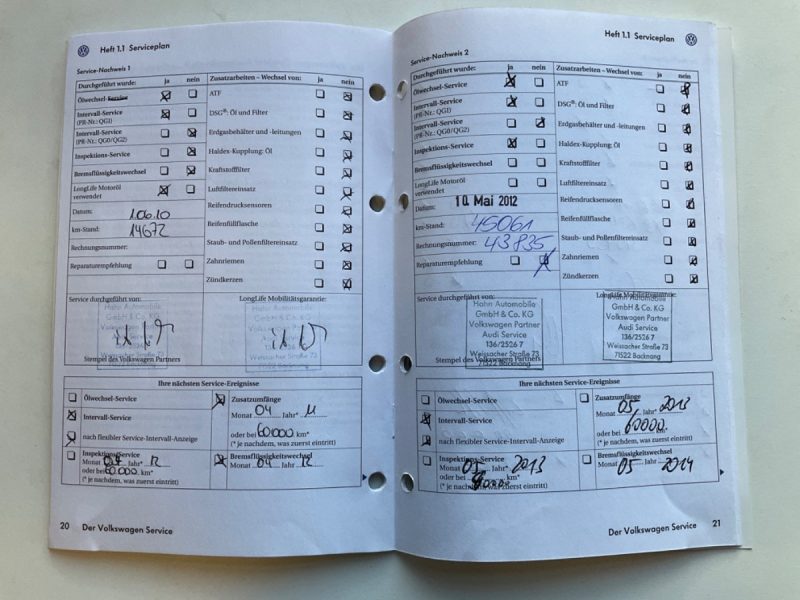 Heft 1.1 Serviceplan
Service-Nachweis 1
Durchgeführt wurde: ja nein
Ölwechsel-Service
Intervall-Service
(PR-Nr.: QG1)
Intervall-Service
(PR-Nr.: QG0/QG2)
Inspektions-Service
Bremsflüssigkeitswechsel
LongLife Motoröl
verwendet
Datum: 1.06.10
km-Stand: 14672
Rechnungsnummer:
Reparaturempfehlung
Zusatzarbeiten – Wechsel von: ja nein
ATF
DSG®: Öl und Filter
Erdgasbehälter und -leitungen
Haldex-Kupplung: Öl
Kraftstofffilter
Luftfiltereinsatz
Reifendrucksensoren
Reifenfüllflasche
Staub- und Pollenfiltereinsatz
Zahnriemen
Zündkerzen
Service durchgeführt von:
Hahn Automobile
GmbH & Co. KG
Volkswagen Partner
Audi Service
Weissacher Straße 73
71522 Backnang
Stempel des Volkswagen Partners
LongLife Mobilitätsgarantie:
Hahn Automobile
GmbH & Co. KG
Volkswagen Partner
Audi Service
Weissacher Straße 73
71522 Backnang
Ihre nächsten Service-Ereignisse
Ölwechsel-Service
Intervall-Service
nach flexibler Service-Intervall-Anzeige
Inspektions-Service
Monat Jahr* 12
oder bei 60000 km*
(* je nachdem, was zuerst eintritt)
Zusatzumfänge
Monat 04 Jahr* 11
oder bei 60000 km*
(* je nachdem, was zuerst eintritt)
Bremsflüssigkeitswechsel
Monat 04 Jahr 12
20 Der Volkswagen Service
Heft 1.1 Serviceplan
Service-Nachweis 2
Durchgeführt wurde: ja nein
Ölwechsel-Service
Intervall-Service
(PR-Nr.: QG1)
Intervall-Service
(PR-Nr.: QG0/QG2)
Inspektions-Service
Bremsflüssigkeitswechsel
LongLife Motoröl
verwendet
Datum: 10. Mai 2012
km-Stand: 45061
Rechnungsnummer: 43835
Reparaturempfehlung
Zusatzarbeiten – Wechsel von: ja nein
ATF
DSG®: Öl und Filter
Erdgasbehälter und -leitungen
Haldex-Kupplung: Öl
Kraftstofffilter
Luftfiltereinsatz
Reifendrucksensoren
Reifenfüllflasche
Staub- und Pollenfiltereinsatz
Zahnriemen
Zündkerzen
Service durchgeführt von:
Hahn Automobile
GmbH & Co. KG
Volkswagen Partner
Audi Service
136/2526 7
Weissacher Straße 73
71522 Backnang
Stempel des Volkswagen Partners
LongLife Mobilitätsgarantie:
Hahn Automobile
GmbH & Co. KG
Volkswagen Partner
Audi Service
136/2526 7
Weissacher Straße 73
71522 Backnang
Ihre nächsten Service-Ereignisse
Ölwechsel-Service
Intervall-Service
nach flexibler Service-Intervall-Anzeige
Inspektions-Service
Monat 05 Jahr* 2013
oder bei km*
(* je nachdem, was zuerst eintritt)
Zusatzumfänge
Monat 05 Jahr* 2013
oder bei 60000. km*
(* je nachdem, was zuerst eintritt)
Bremsflüssigkeitswechsel
Monat 05 Jahr 2014
Der Volkswagen Service 21